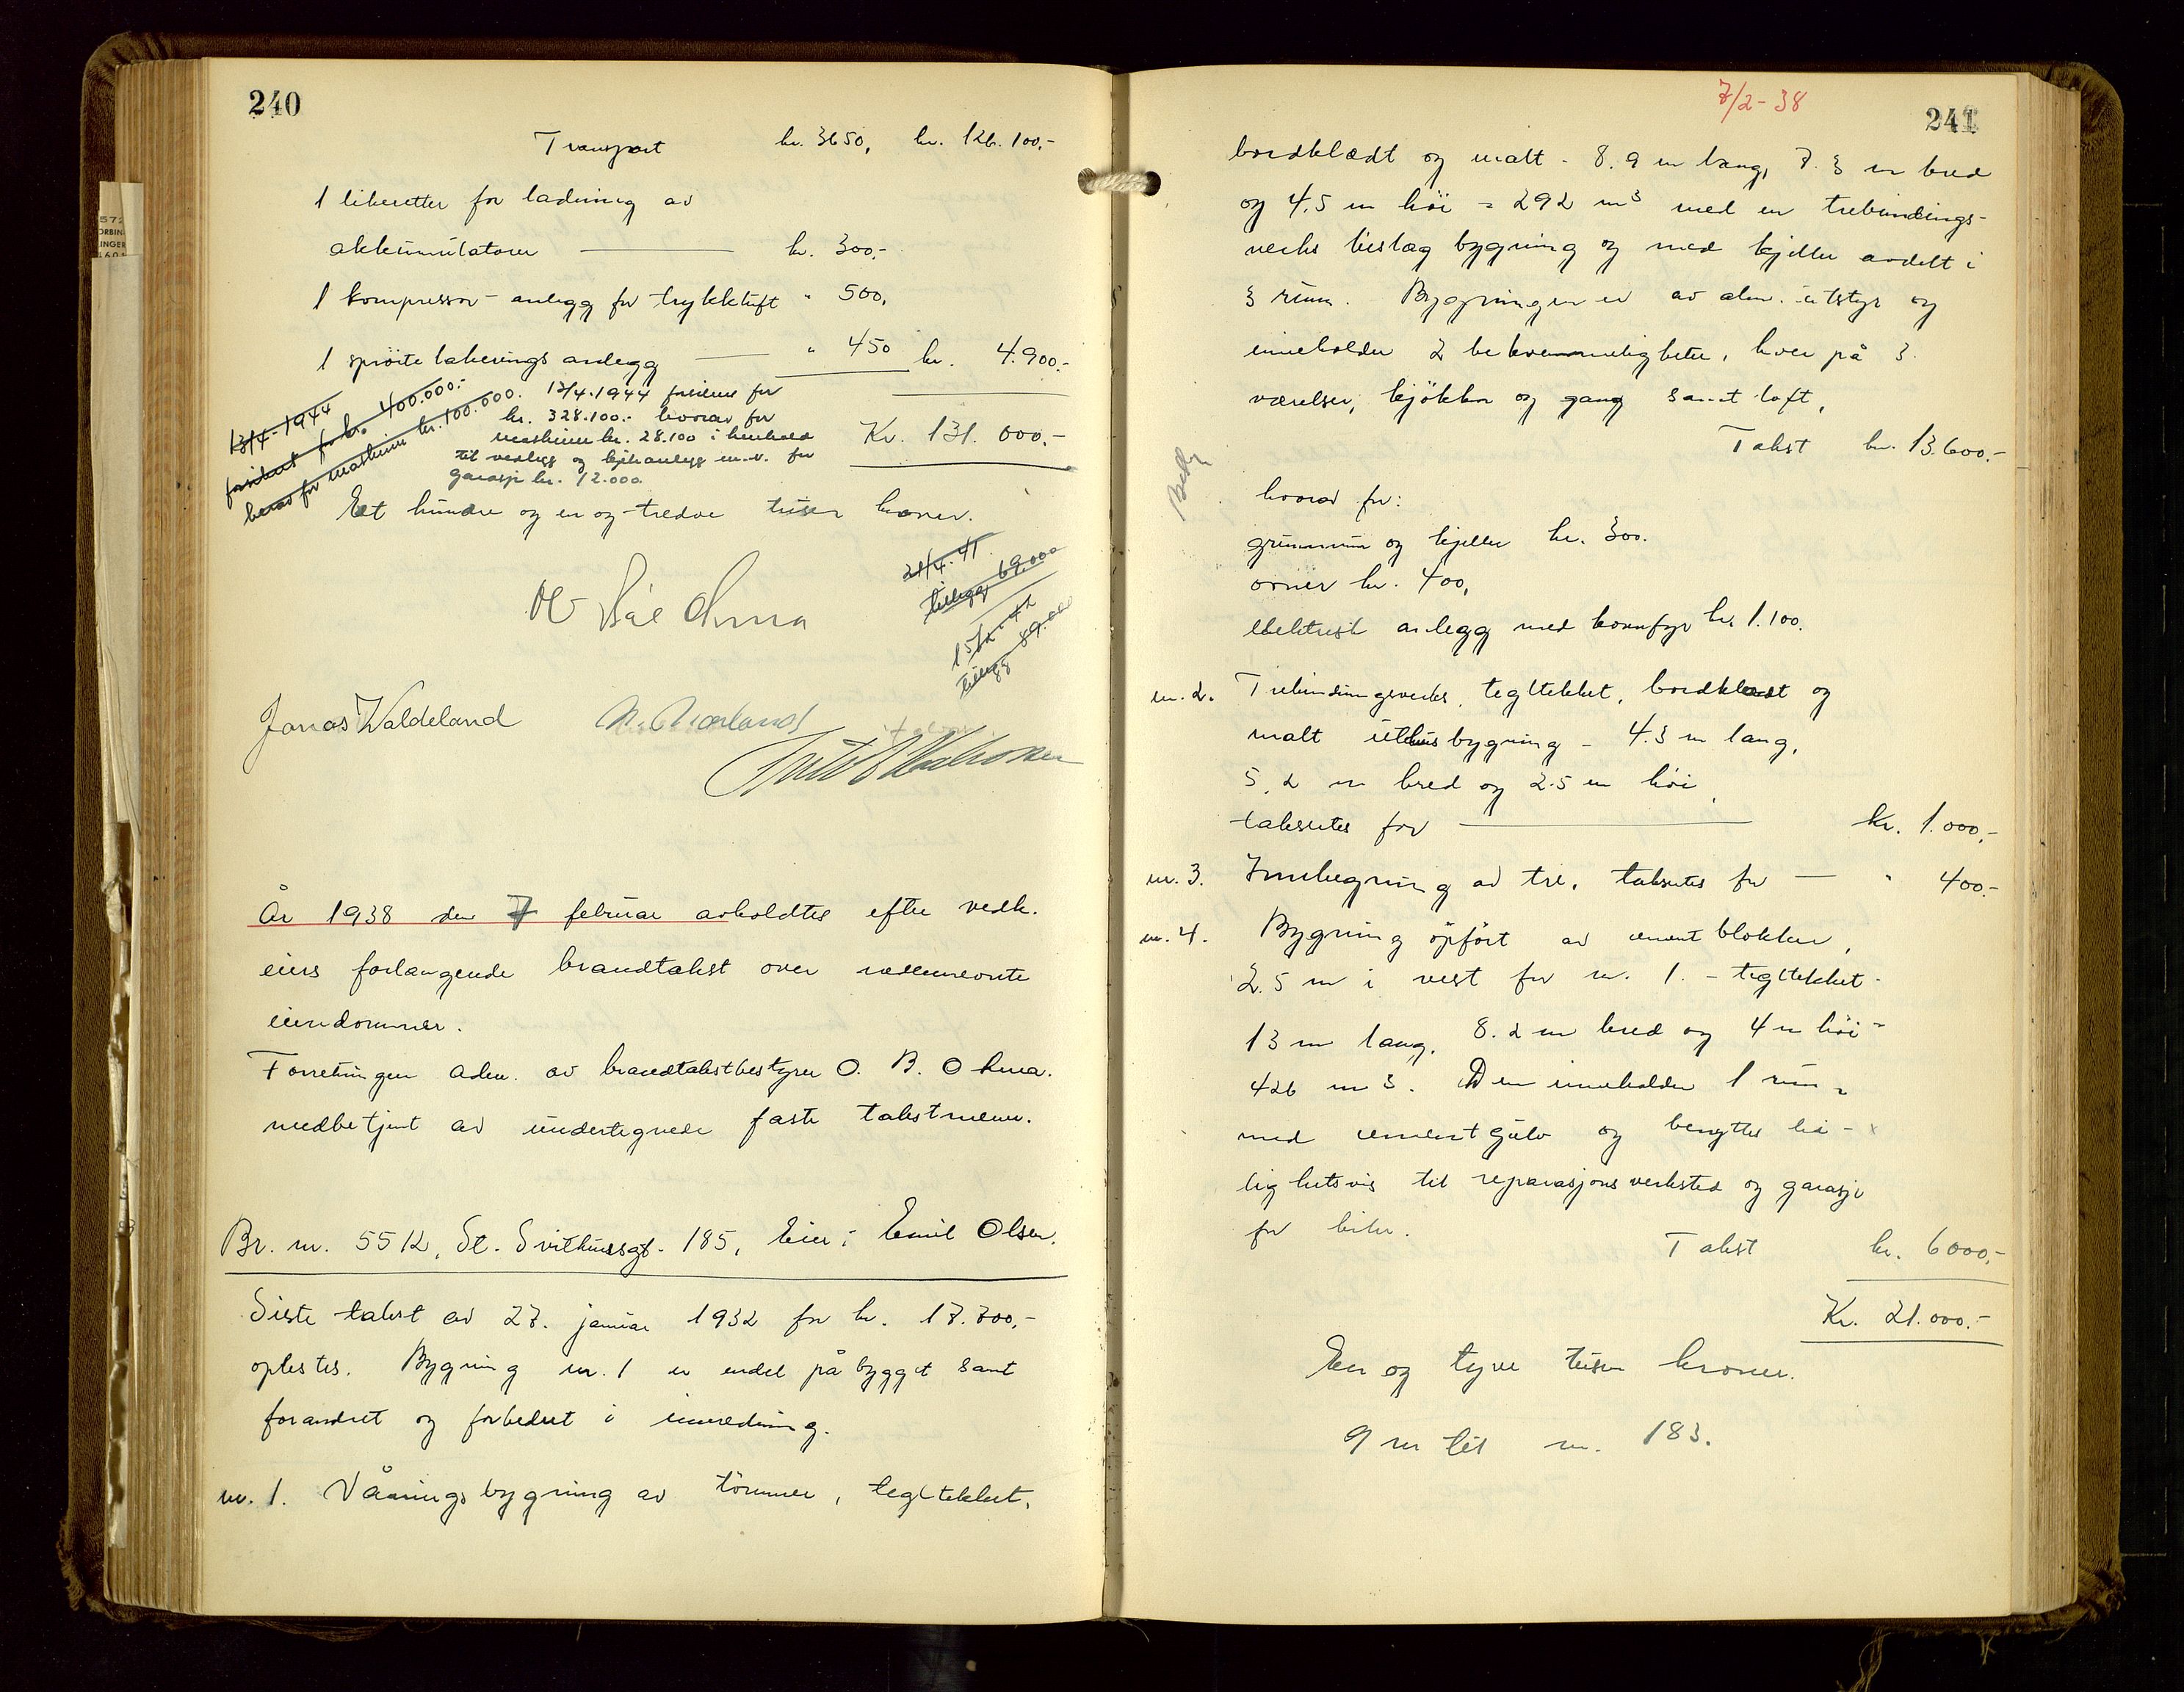 240
Transport kr. 3650, kr. 126.100.-
1 likeretter for ladning av
akkumulatorer kr. 300.-
1 kompressor-anlegg for trykkluft " 500,
1 sprøite lakerings anlegg " 450 kr. 4.900.-
13/4-1944
forsikret for kr. 400.000.-
herav for maskiner kr. 100.000.
13/4.1944 forsikres for
kr. 328.100.- hvorav for
maskiner kr. 28.100 i henhold
til vedlegg og m.v. for
garasje kr. 12.000.
Kr. 131.000.-
Et hundre og en og tredve tusen kroner.
21/4.41.
tillegg 69.000
15/2-42
tillegg 89.000
Jonas Waldeland
År 1938 den 7 februar avholdtes efter vedk.
eiers forlangende brandtakst over nedennevnte
eiendommer.
Forretningen adm. av brandtakstbestyrer O. B. Okma.
medbetjent av undertegnede faste takstmenn.
Br. nr. 55 K, St. Svithunsgt. 185, Eier: Emil Olsen.
Siste takst av 27. januar 1932 for kr. 17.700.-
oplestes. Bygning nr. 1 er endel påbygget samt
forandret og forbedret i innredning.
nr. 1. Våningsbygning av tömmer, tegltekket,
7/2-38
241
bordklædt og malt - 8.9 m lang, 7.3 m bred
og 4.5 m höi = 292 m³ med en trebindings-
verks bislag bygning og med kjeller avdelt i
3 rum. Bygningen er av alm. utstyr og
inneholder 2 bekvemmeligheter, hver på 3
værelser, kjökken og gang samt loft,
Takst kr. 13.600.-
hvorav for:
grunnmur og kjeller kr. 300.
ovner kr. 400,
elektrisk anlegg med komfyr kr. 1.100.
nr. 2. Trebindingsverks, tegltekket, bordklædt og
malt uthusbygning - 4.3 m lang,
5,2 m bred og 2.5 m höi,
takseres for kr. 1.000.-
nr. 3. Innhegning av tre, takseres for " 400.-
nr. 4. Bygning opfört av cement blokker,
2.5 m i vest for nr. 1. - tegltekket -
13 m lang, 8.2 m bred og 4 m höi =
426 m3. Den inneholder 1 rum,
med cementgulv og benyttes lei-
lighetsvis til reparasjonsverksted og garasje
for biler.
Takst kr. 6000.-
Kr. 21.000.-
En og tyve tusen kroner.
9 m til nr. 183.